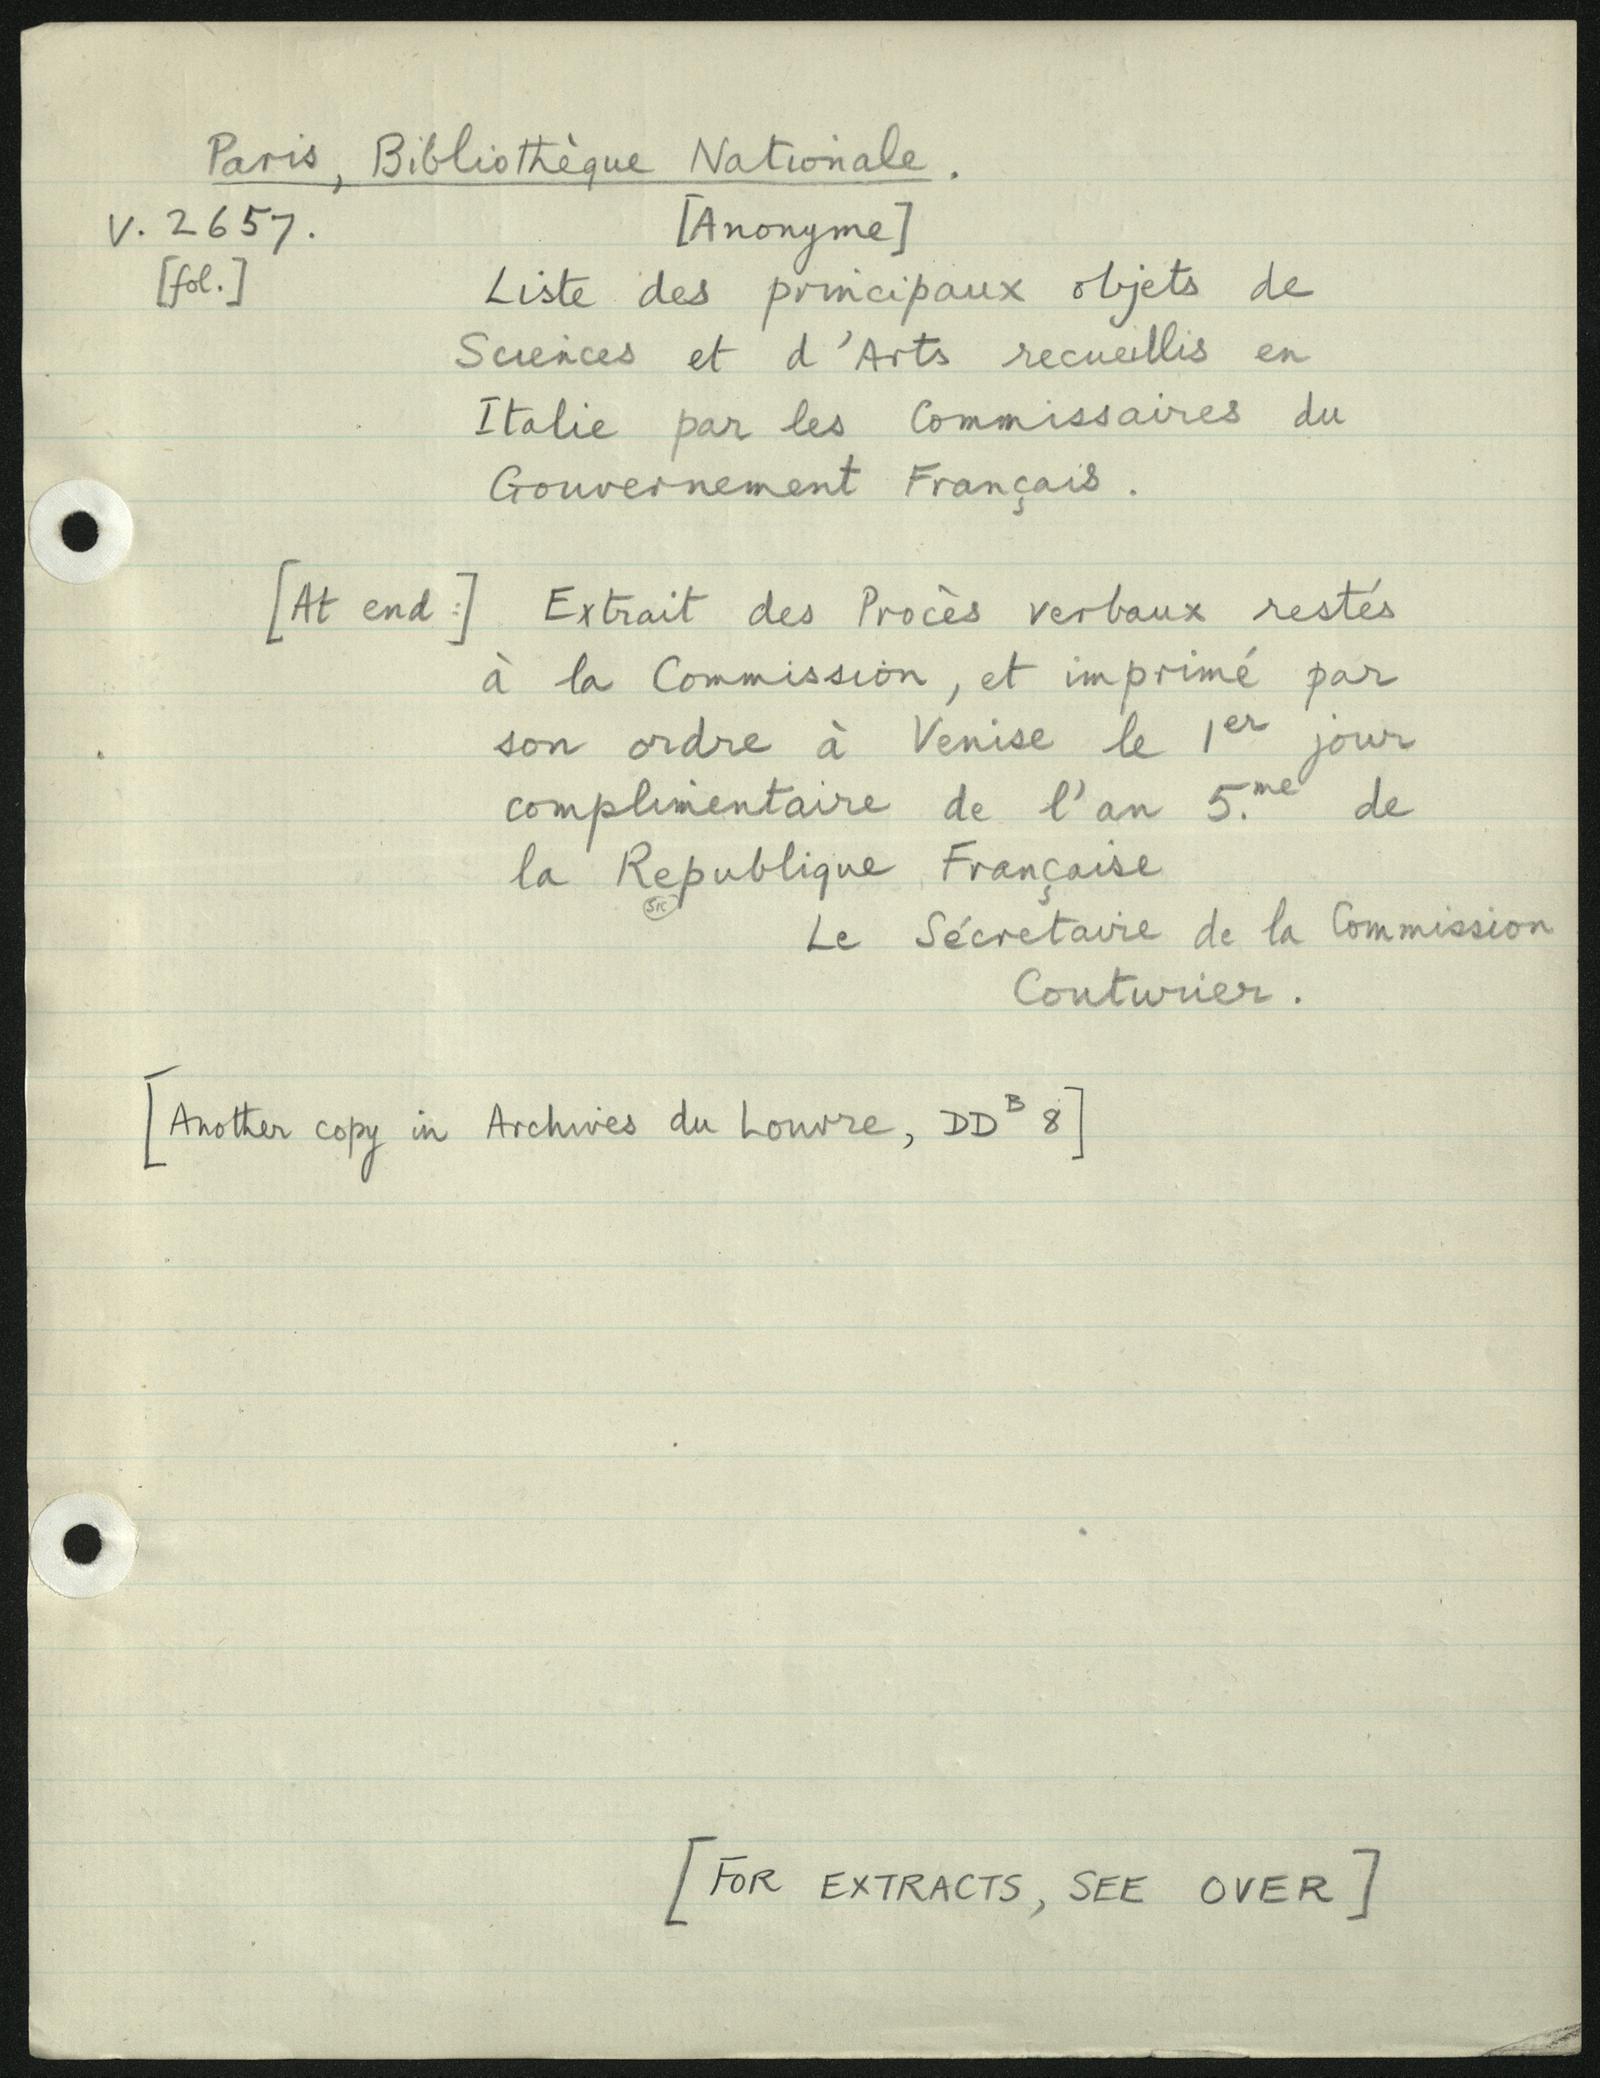 Paris, Bibliothèque Nationale.
V. 2657.
[Anonyme]
[fol.]
Liste des principaux objets de
Sciences et d'Arts recueillis en
Italie par les Commissaires du
Gouvernement Français.
[At end:] Extrait des Procès verbaux restés
à la Commission, et imprimé par
son ordre à Venise le 1er jour
complimentaire de l'an 5.me de
la Republique Française
sic
Le Sécretaire de la Commission
Couturier.
[Another copy in Archives du Louvre, DDB 8]
[FOR EXTRACTS, SEE OVER]